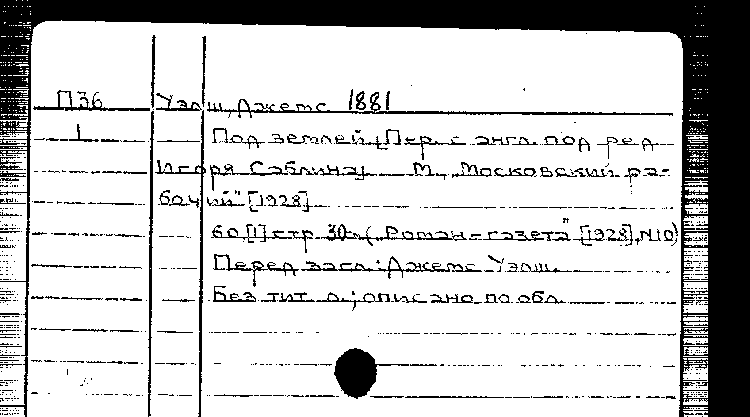 П36 Уэлш, Джемс 1881
1 Под землей. [Пер. с англ. под ред.
Игоря Саблина]. М., „Московский ра-
бочий" [1928]
60,[1] стр. 30к. („Роман-газета" [1928], N10)
Перед загл.: Джемс Уэлш.
Без тит. л.; описано по обл.